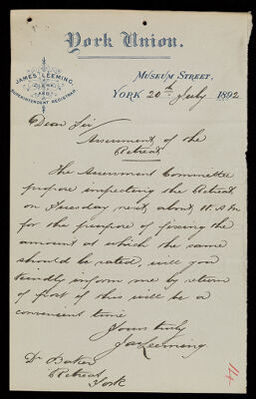 York Union.
JAMES LEEMING,
CLERK
AND
SUPERINTENDENT REGISTRAR.
MUSEUM STREET,
YORK 20th July 1892
Dear Sir
Assessment of the
Retreat
The Assessment Committee
propose inspecting the Retreat
on Tuesday next, about 11 A.M.
for the purpose of fixing the
amount at which the same
should be rated, will you
kindly inform me by return
of post if this will be a
convenient time
Yours truly
Jas Leeming
Dr Baker
Retreat
York
14